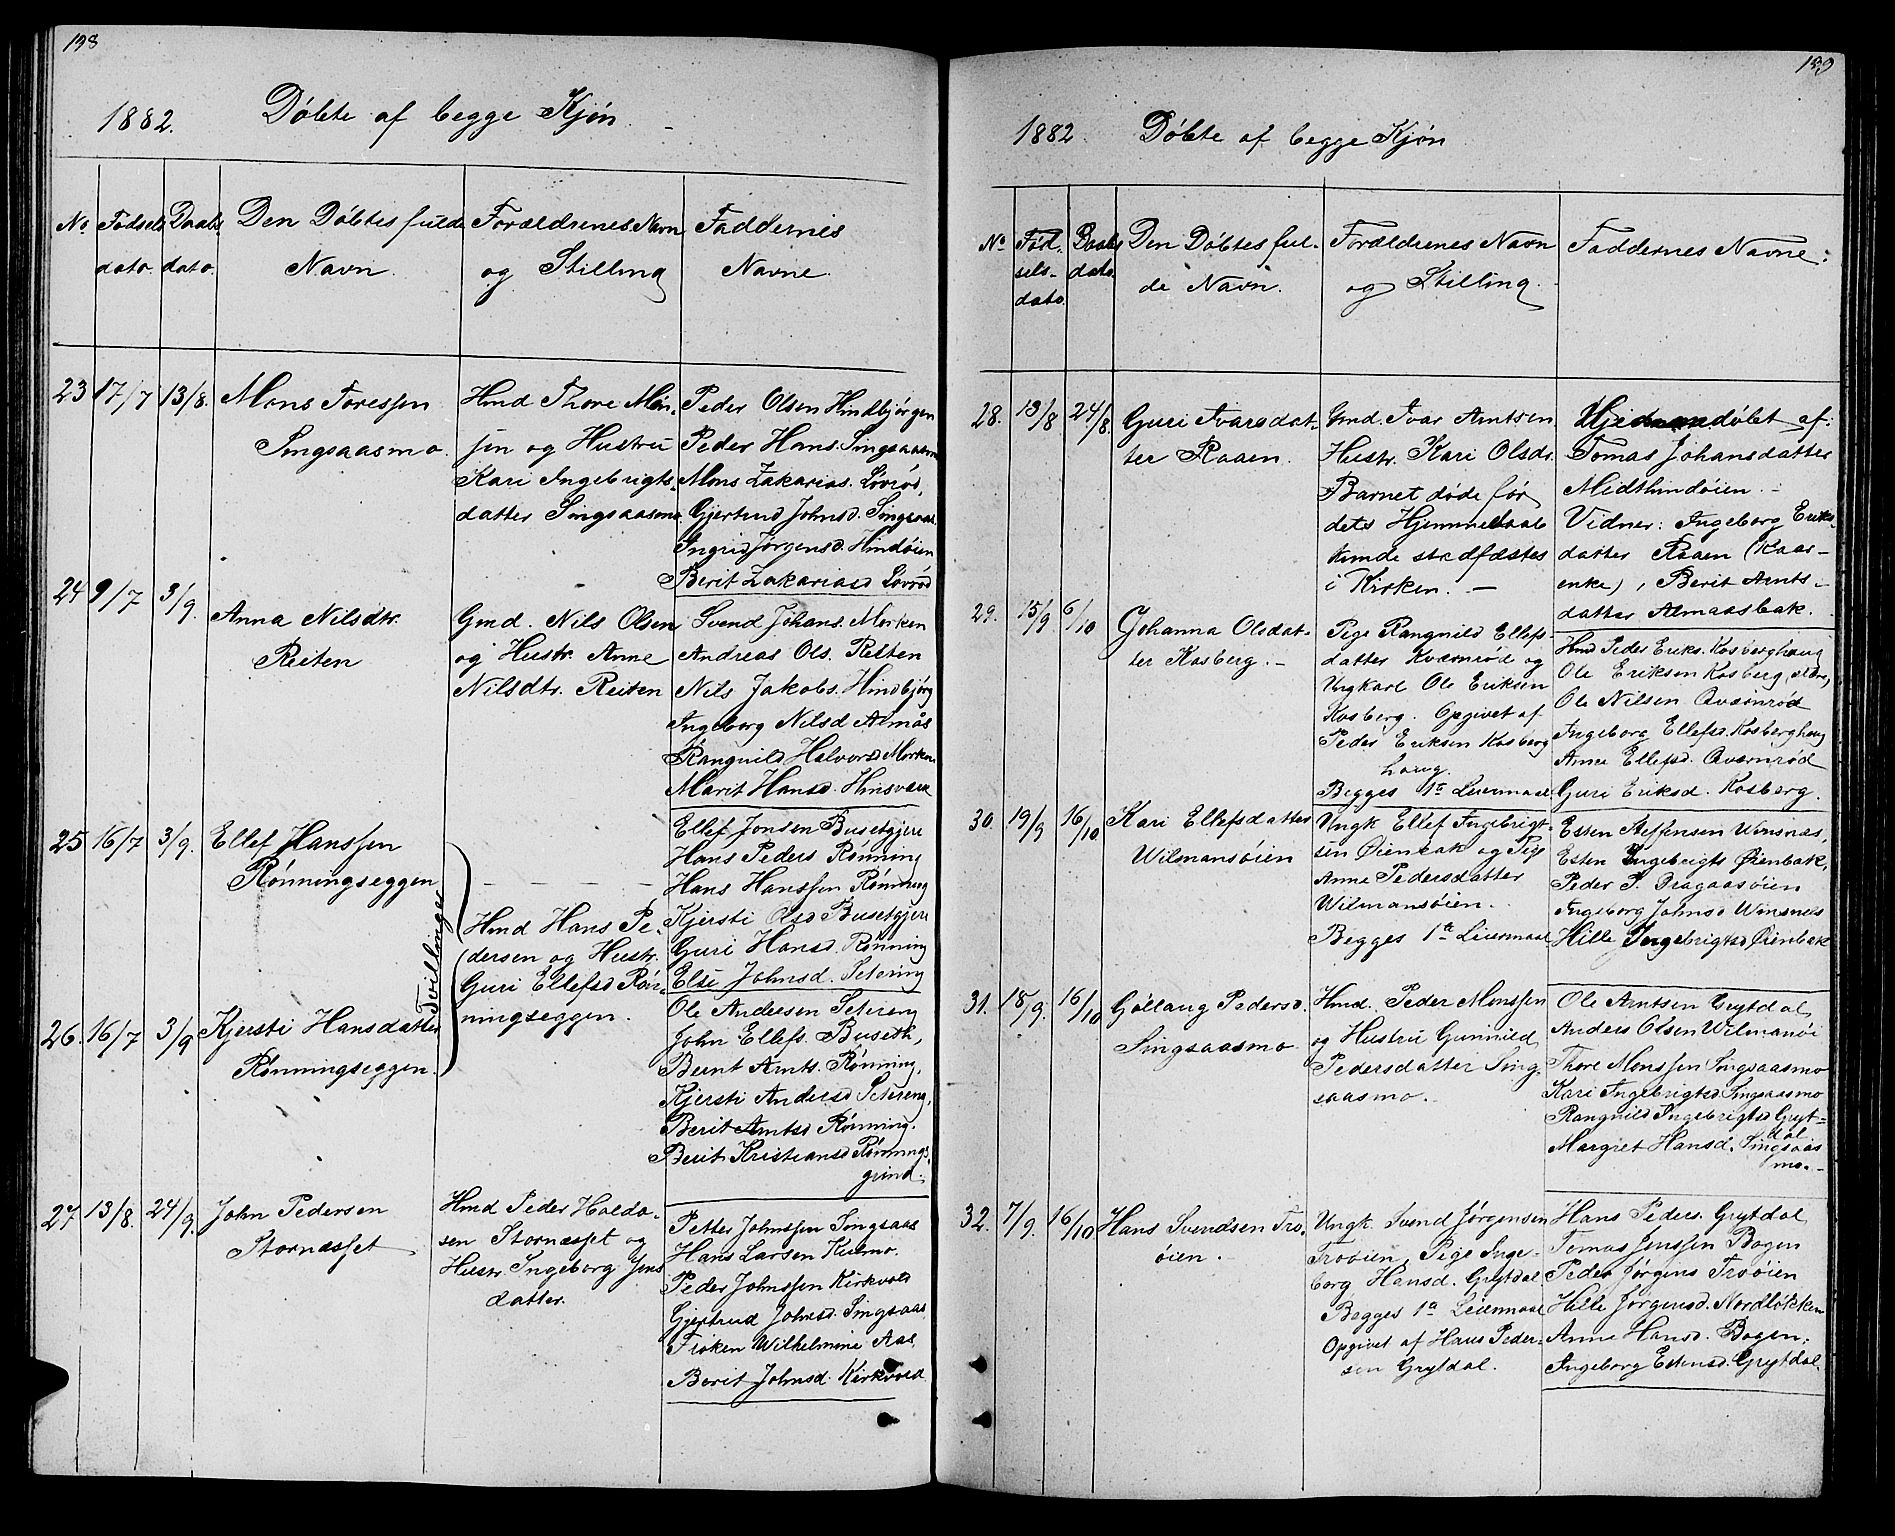 138
1882. Döbte af begge Kjøn.
No Fødsels dato. Daabs dato. Den Döbtes fulde Navn. Forældrenes Navn og Stilling Faddernes Navne.
23 17/7 13/8. Mons Toressen
Singsaasmo.
Hmd Thore Mon-
sen og Hustru
Kari Ingebrigts-
datter Singsaasmo.
Peder Olsen Hindbjørgen
Peder Hans. Singsaasm
Mons Zakarias. Lovröd,
Gjertrud Johnsd. Singsaas.
Ingrid Jørgensd. Hindöien
Berit Zakariasd Lovröd
24 9/7 3/9. Anna Nilsdtr.
Reiten
Gmd. Nils Olsen
og Hustr. Anne
Nilsdtr. Reiten
Svend Johans. Morken
Andreas Ols. Reiten
Nils Jakobs. Hindbjörg
Ingeborg Nilsd Almås
Rangnild Halvorsd Morken
Marit Hansd.
25 16/7 3/9. Ellef Hanssen
Rönningseggen
Tvillinger
Hmd Hans Pe-
dersen og Hustr.
Guri Ellefsd Rön-
ningseggen.
Ellef Jonsen Busetgjere
Hans Peders Rönning
Hans Hanssen Rönning
Kjersti Olsd Busetgjere
Guri Hansd. Rönning
Else Johnsd. Setering
26. 16/7 3/9 Kjersti Hansdatter
Rönningseggen.
Ole Andersen Setereng
John Ellefs. Buseth,
Bernt Arnts. Rönning,
Kjersti Andersd Setereng,
Berit Arntsd Rönning.
Berit Kristiansd Rönnings-
grind.
27 13/8. 24/9. John Pedersen
Stornæsset
Hmd Peder Haldo-
sen Stornæsset og
Hustr. Ingeborg Jens
datter.
Petter Johnssen Singsaas
Hans Larsen Kulmo.
Peder Johnssen Kirkvold
Gjertrud Johnsd. Singsaas
Frøken Wilhelmine Aas,
Berit Johnsd. Kirkvold
139
1882. Döbte af begge Kjøn
No Föd- sels- dato. Daabs dato. Den Döbtes ful- de Navn. Forældrenes Navn og Stilling. Faddernes Navne:
28. 13/8 24/8. Guri Ivarsdat-
ter Raaen.
Gmd. Ivar Arntsen
Hustr. Kari Olsdr.
Barnet döde før
dets Hjemmedaab
kunde stadfæstes
i Kirken. -
Hjemmedöbt af:
Tomas Johansdatter
Midthindöien. -
Vidner: Ingeborg Eriks-
datter Raaen (Kaar-
enke), Berit Arnts-
datter Almaasbak.
29. 15/9 6/10 Johanna Olsdat-
ter Kosberg. -
Pige Rangnild Ellefs-
datter Kværnröd og
Ungkarl Ole Eriksen
Kosberg. Opgivet af
Peder Eriksen Kosberg
haug.
Begges 1te Leiermaal.
Hmd Peder Eriks. Kosberghaug
Ole Eriksen Kosberg, ældre,
Ole Nilsen Qværnröd
Ingeborg Ellefsd. Kosberghaug
Anne Ellefsd. Qværnröd
Guri Eriksd. Kosberg.
30. 19/9 16/10 Kari Ellefsdatter
Wilmansöien
Ungk Ellef Ingebrigt-
sen Øienbak og Pige
Anne Pedersdatter
Wilmansöien.
Begges 1te Leiermaal
Esten Steffensen Winsnæs,
Esten Ingebrigts Øienbak,
Peder P. Dragaasöien
Ingeborg Johnsd Winsnes
Hille Ingebrigtsd Øienbak
31. 18/9. 16/10 Göllaug Pedersd.
Singsaasmo
Hmd. Peder Monssen
og Hustru Gunnild
Pedersdatter Sing-
saasmo.
Ole Arntsen Grytdal,
Anders Olsen Wilmanöi
Thore Monssen Singsaasmo
Kari Ingebrigtsd. Singsaasmo
Rangnild Ingebrigtsd Gryt-
dal
Margret Hansd. Singsaas
mo.-
32. 7/9. 16/10 Hans Svendsen Tro-
öien.
Ungk. Svend Jørgensen
Troöien, Pige Inge-
borg Hansd. Grytdal
Begges 1te Leiermaal
Opgivet af Hans Peder-
sen Grytdal.
Hans Peders. Grytdal
Tomas Jenssen Bogen
Peder Jørgens Troöien
Hille Jørgensd. Nordlökken
Anne Hansd. Bogen.
Ingeborg Estensd. Grytdal